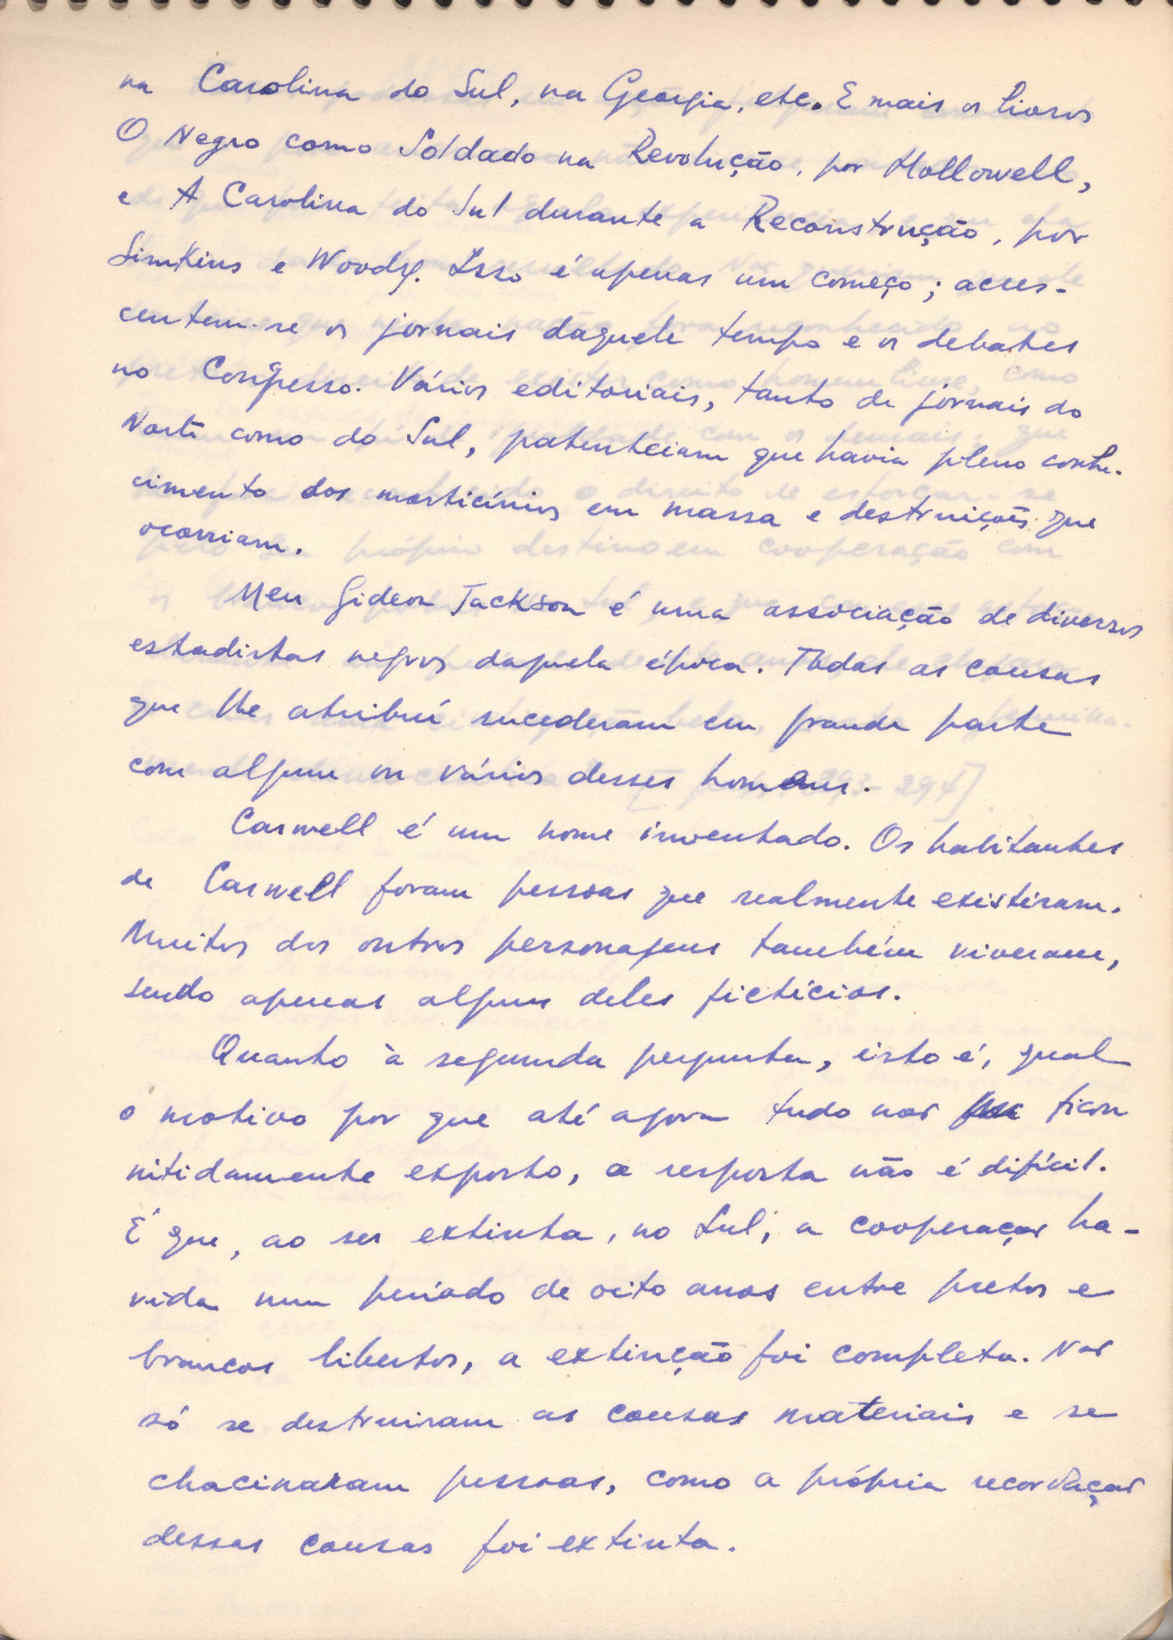 na Carolina do Sul, na Georgia, etc. E mais os livros
O Negro como Soldado na Revolução, por Hollowell,
e A Carolina do Sul durante a Reconstrução, por
Simkins e Woody. Isso é apenas um começo; acres-
centem-se os jornais daquele tempo e os debates
no Congresso. Vários editoriais, tanto de jornais do
Norte como do Sul, patenteiam que havia pleno conhe-
cimento dos morticínios em massa e destruições que
ocorriam.
Meu Gideon Jackson é uma associação de diversos
estadistas negros daquela época. Todas as cousas
que lhe atribuí sucederam em grande parte
com algum ou vários desses homens.
Carwell é um nome inventado. Os habitantes
de Carwell foram pessoas que realmente existiram.
Muitos dos outros personagens também viveram,
sendo apenas alguns deles fictícios.
Quanto à segunda pergunta, isto é, qual
o motivo por que até agora tudo não ficou
nitidamente exposto, a resposta não é difícil.
É que, ao ser extinta, no Sul, a cooperação ha-
vida num período de oito anos entre pretos e
brancos libertos, a extinção foi completa. Não
só se destruiram as cousas materiais e se
chacinaram pessoas, como a própria recordação
dessas cousas foi extinta.